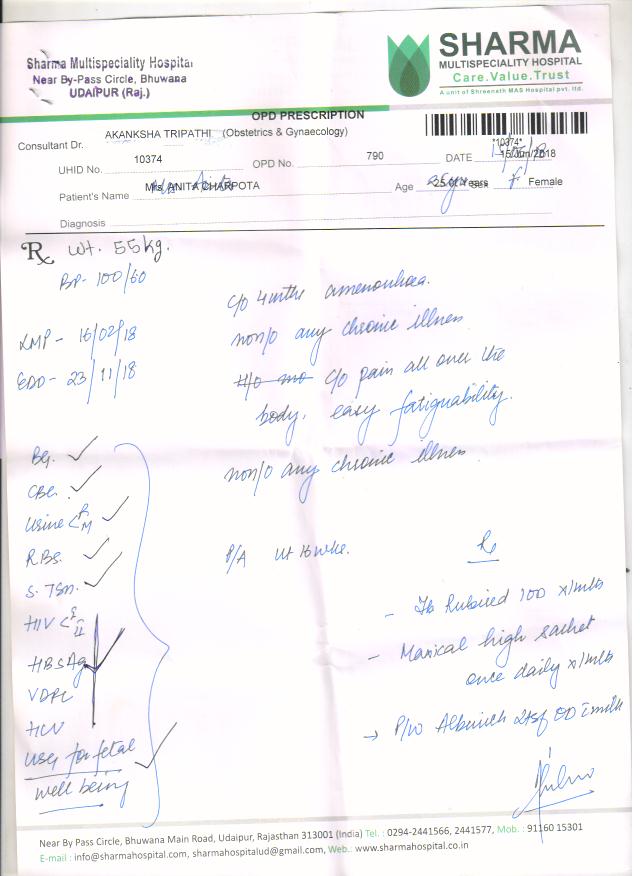 Sharma Multispeciality Hospital
Near By-Pass Circle, Bhuwana
UDAIPUR (Raj.)
SHARMA
MULTISPECIALITY HOSPITAL
Care.Value.Trust
A unit of Shreenath MAS Hospital pvt. ltd.
OPD PRESCRIPTION
Consultant Dr. AKANKSHA TRIPATHI (Obstetrics & Gynaecology)
*10374*
UHID No. 10374 OPD No. 790 DATE 15/Jun/2018
Patient's Name Mrs. ANITA CHARPOTA Age 25 Years Sex Female
Diagnosis
Rx Wt. 55kg.
BP- 100/60
c/o 4mths amenorrhoea.
LMP - 16/02/18
non/o any chronic illness
EDD- 23/11/18
c/o pain all over the
body, easy fatiguability.
non/o any chronic illness
BG.
CBC.
Urine C R M
RBS.
S. TSH.
P/A ut 16 wks.
Rx
HIV I II
HBSAg
VDRL
HCV
USG for fetal
well being
- Tb Rubired 100 x1mth
- high sachet
once daily x1mth
→ P/w 2tsf OD c milk
Near By Pass Circle, Bhuwana Main Road, Udaipur, Rajasthan 313001 (India) Tel. : 0294-2441566, 2441577, Mob. : 91160 15301
E-mail : info@sharmahospital.com, sharmahospitalud@gmail.com, Web.: www.sharmahospital.co.in